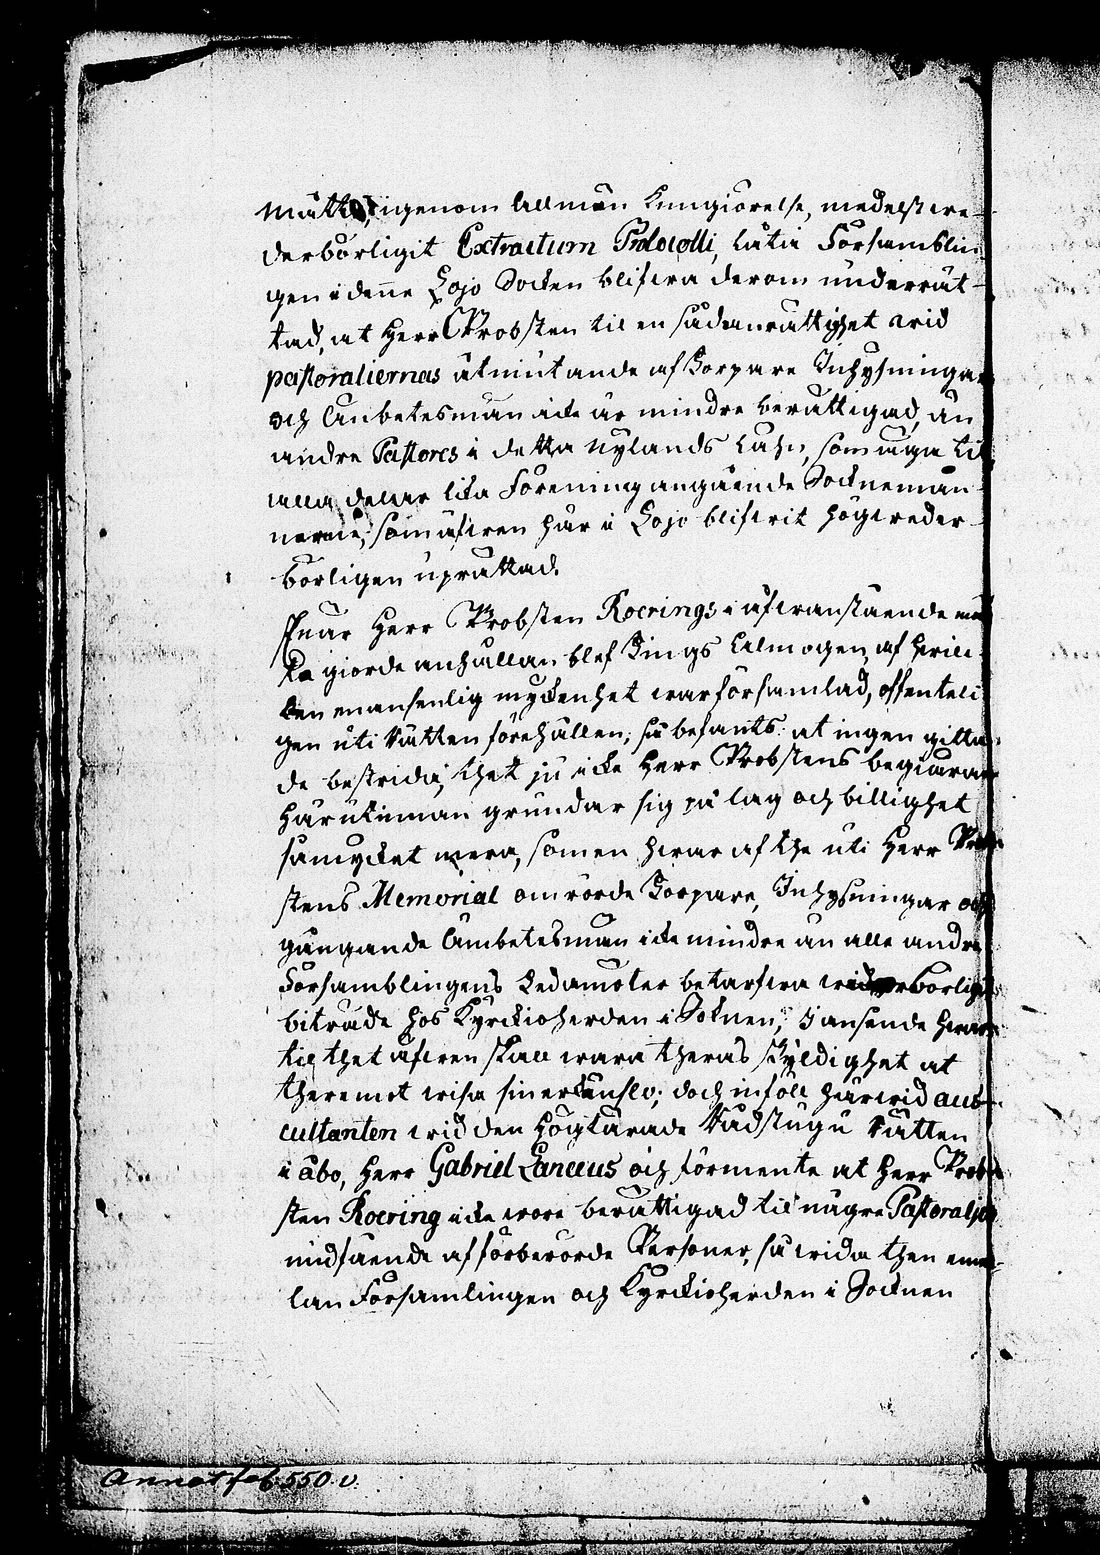 måtte, igenom Allmän Kungiörelse, medelst we-
derbörligit Extractum Protocolli, låtia Församblin-
gen i denne Lojo Socken blifwa derom underrät-
tad, at Herr Probsten til en sådan rättighet wid
pastoraliernas utmutande af Torpare Inhysningar
och Ambetesmän icke är mindre berättigad, än
andre Pastores i detta Nylands Lähn, som äga til
alla delar lika Förening angående Socknemän-
nerne, som äfwen här i Lojo blifwit högweder-
börligen uprättad.
Snär Herr Probsten Roerings i åfwanstående måt-
ta giorde anhållan blef Tings Allmogen, af hwil-
ken en ansenlig myckenhet war församlad, offenteli-
gen uti Rätten förehållen; så befants: at ingen gitta-
de bestrida, thet ju icke Herr Probstens begiäran
härutinnan grundar sig på lag och billighet
så mycket mera, som en hwar af the uti Herr Prob-
stens Memorial omrörde Torpare, Inhysningar och
gångande Ambetesmän icke mindre än alle andre
Församblingens Ledamöter betarfwa wederbörligit
biträde hos Kyrckioherden i Socknen, i anseende hwar-
til thet äfwen skall wara theras skyldighet at
theremot wisa sin erkänslo; doch inföll härwid aus-
cultanten wid den Högtärade Rådstugu Rätten
i Åbo, Herr Gabriel Lanæus och förmente at Herr Prob-
sten Roering icke wore berättigad til någre Pastoralier
undfående af förberörde Personer, så wida then emel-
lan Församlingen och Kyrckioherden i Socknen
Annotfol 550. v.